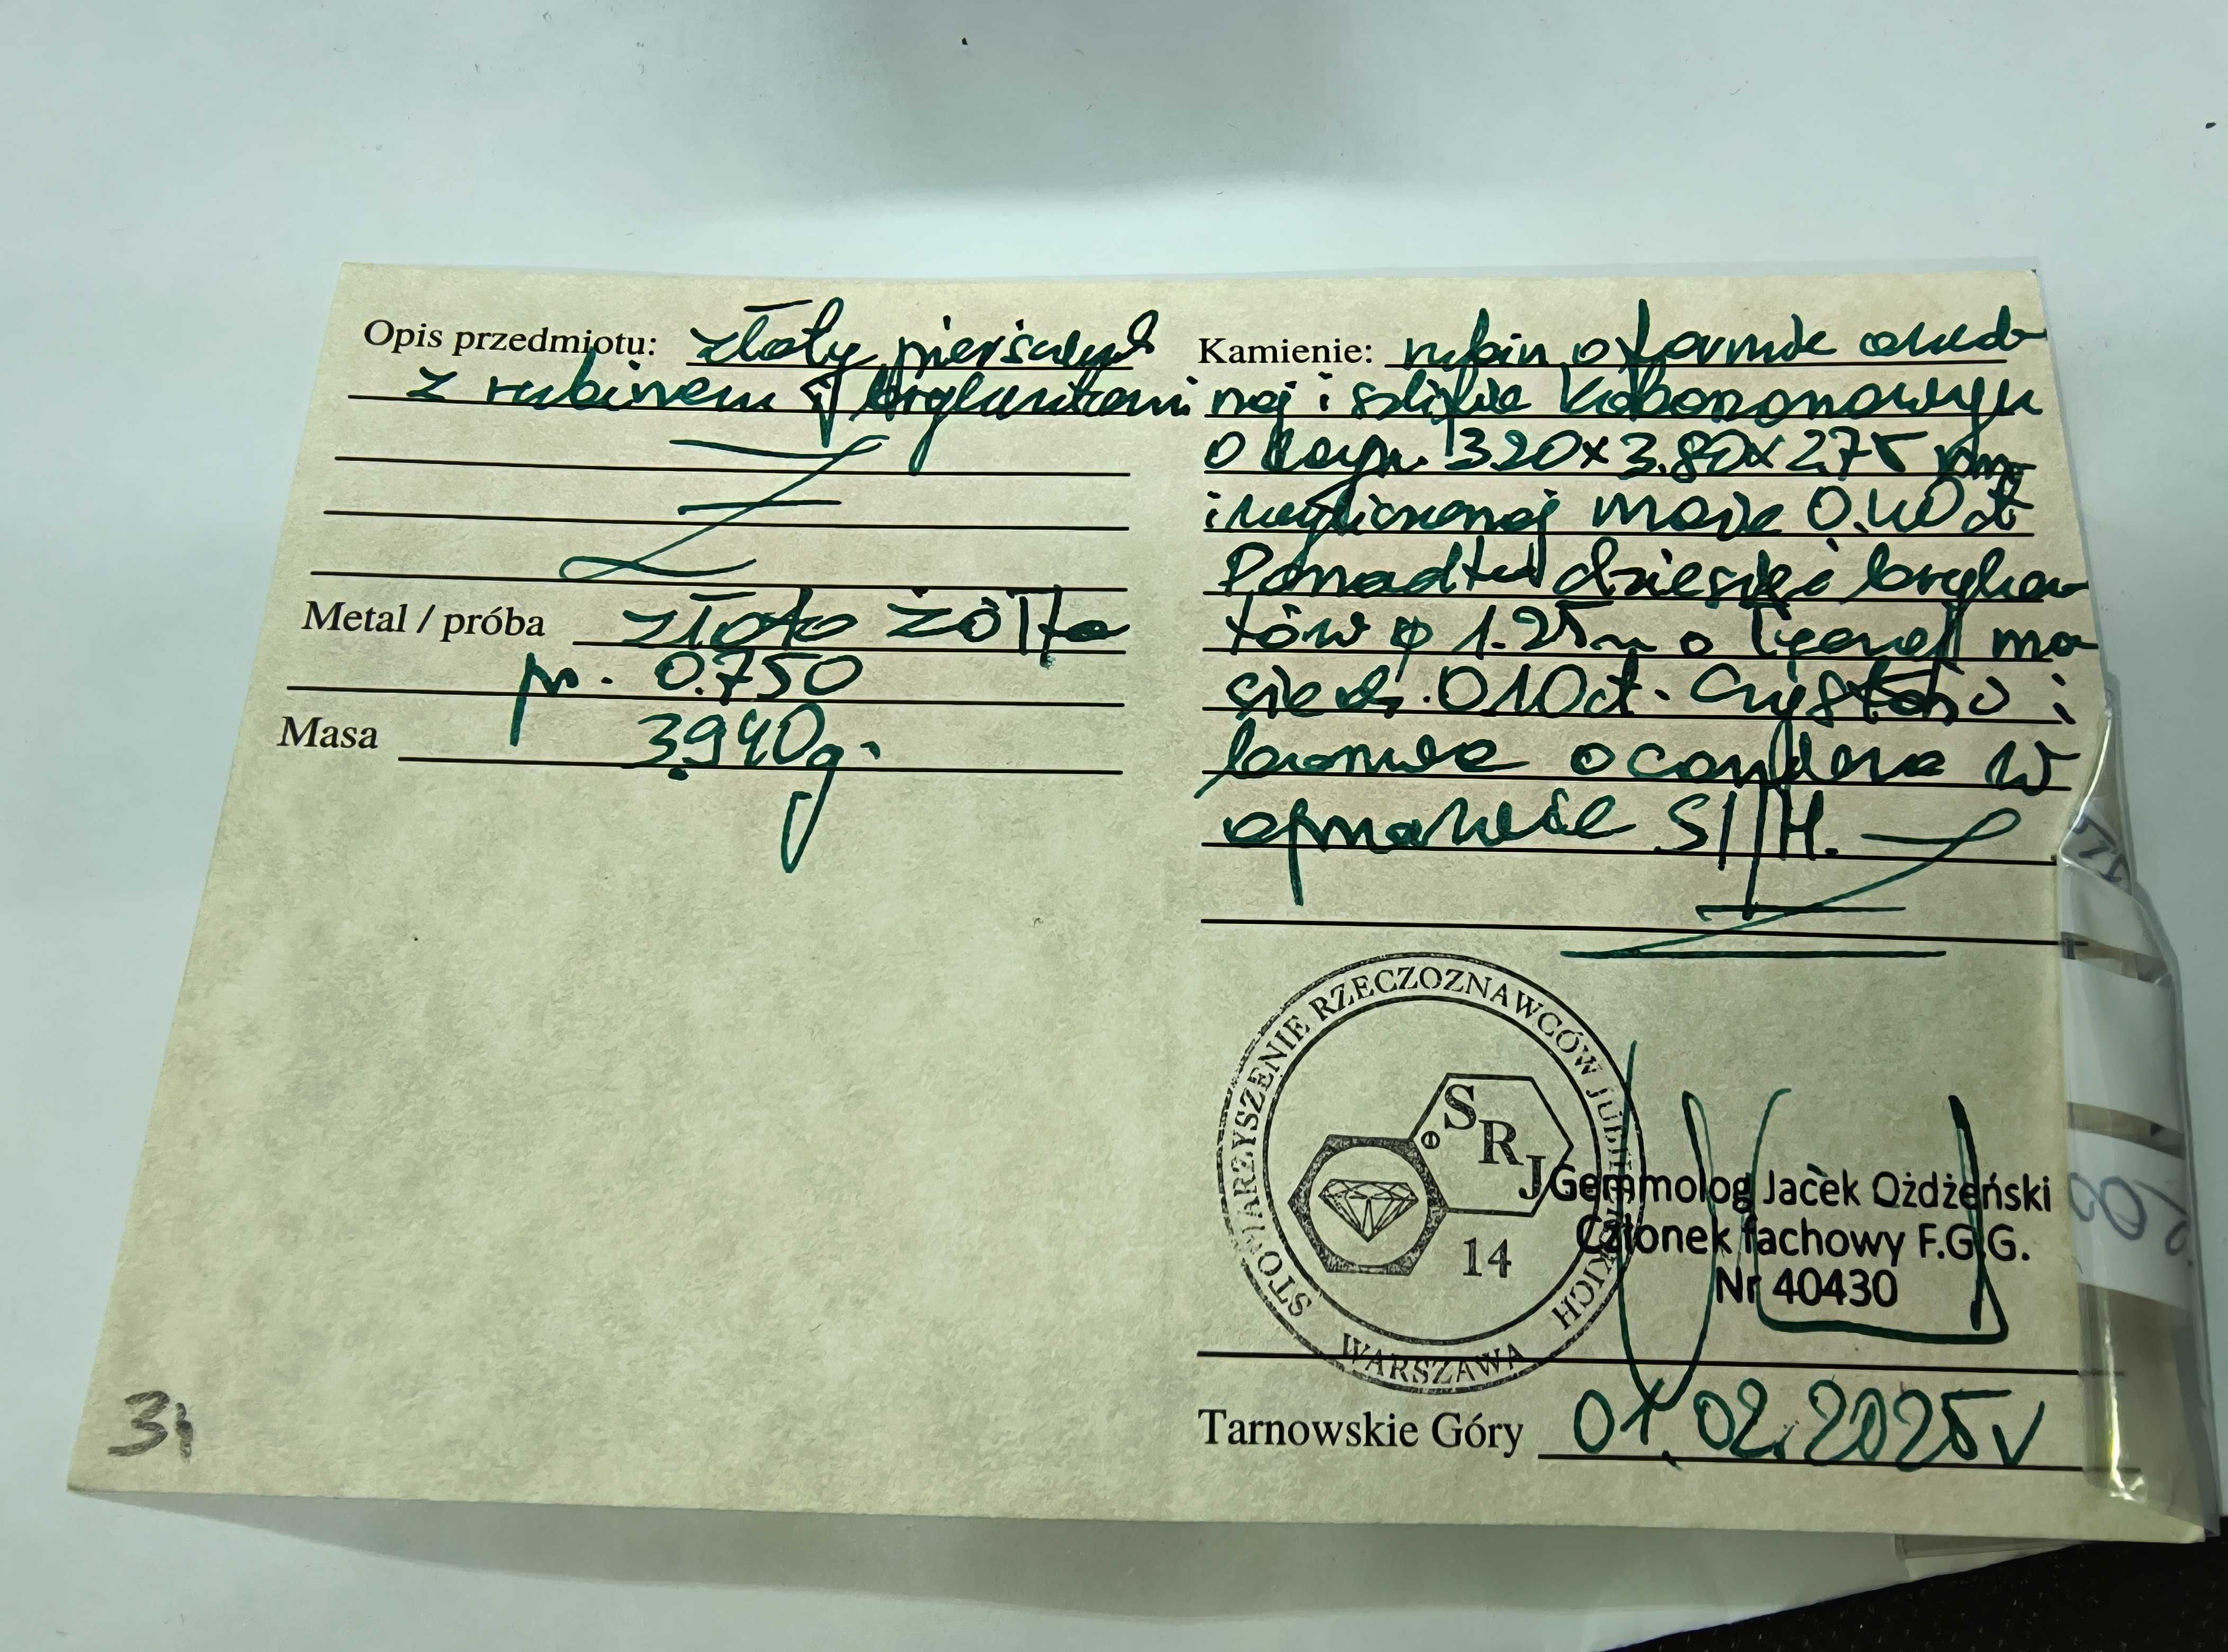 Opis przedmiotu: złoty pierścionek
z rubinem i brylantami
Metal / próba złoto żółte
pr. 0.750
Masa 3.940g.
Kamienie: rubin o formie owal
nej i szlifie kaboszonowym
o wym. 3.20x3.80x2.75 mm
i wyliczonej masie 0.40ct
Ponadto dziesięć brylan
tów φ 1.25m o łącznej ma
sie ok. 0.10ct. Czystość i
barwa oceniona w
oprawie SI/H.
STOWARZYSZENIE RZECZOZNAWCÓW JUBILERSKICH
WARSZAWA
SRJ
14
Gemmolog Jacek Ożdżeński
Członek fachowy F.G.G.
Nr 40430
Tarnowskie Góry 01.02.2025r
31